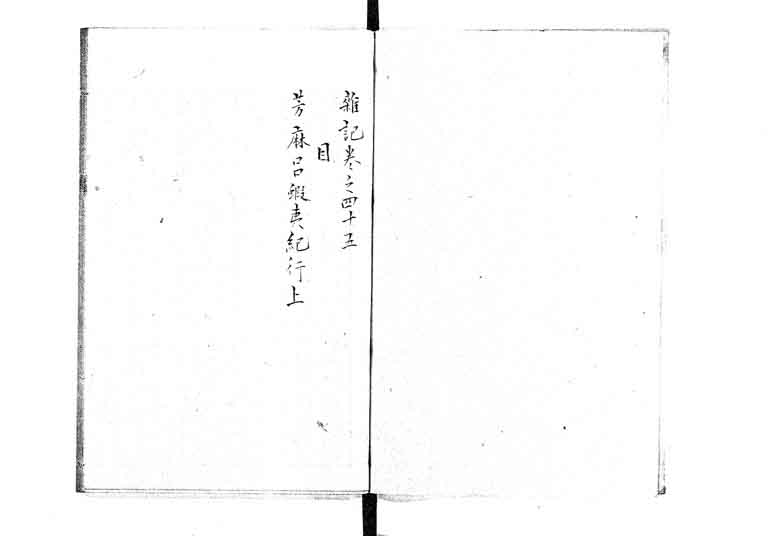 雜記巻之四十五
目
芳麻呂蝦夷紀行上